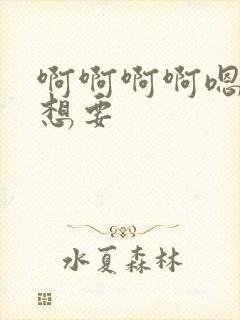 啊啊啊啊嗯
想要
水夏森林